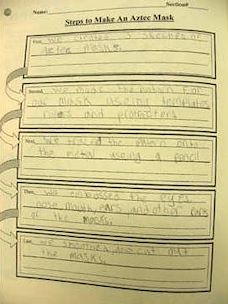 Name: Section#
Steps to Make An Aztec Mask
First, we created 3 sketches of
aztec masks.
Second, we made the pattern for
our mask using templates
rulers and protractors
Next, we traced the pattern onto
the metal using a pencil
Then, we embosses the eyes,
nose mouth, ears and other parts
of the mask.
Last, we cut out
the masks.